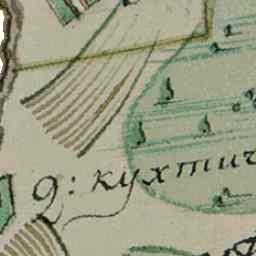 9: кухтич